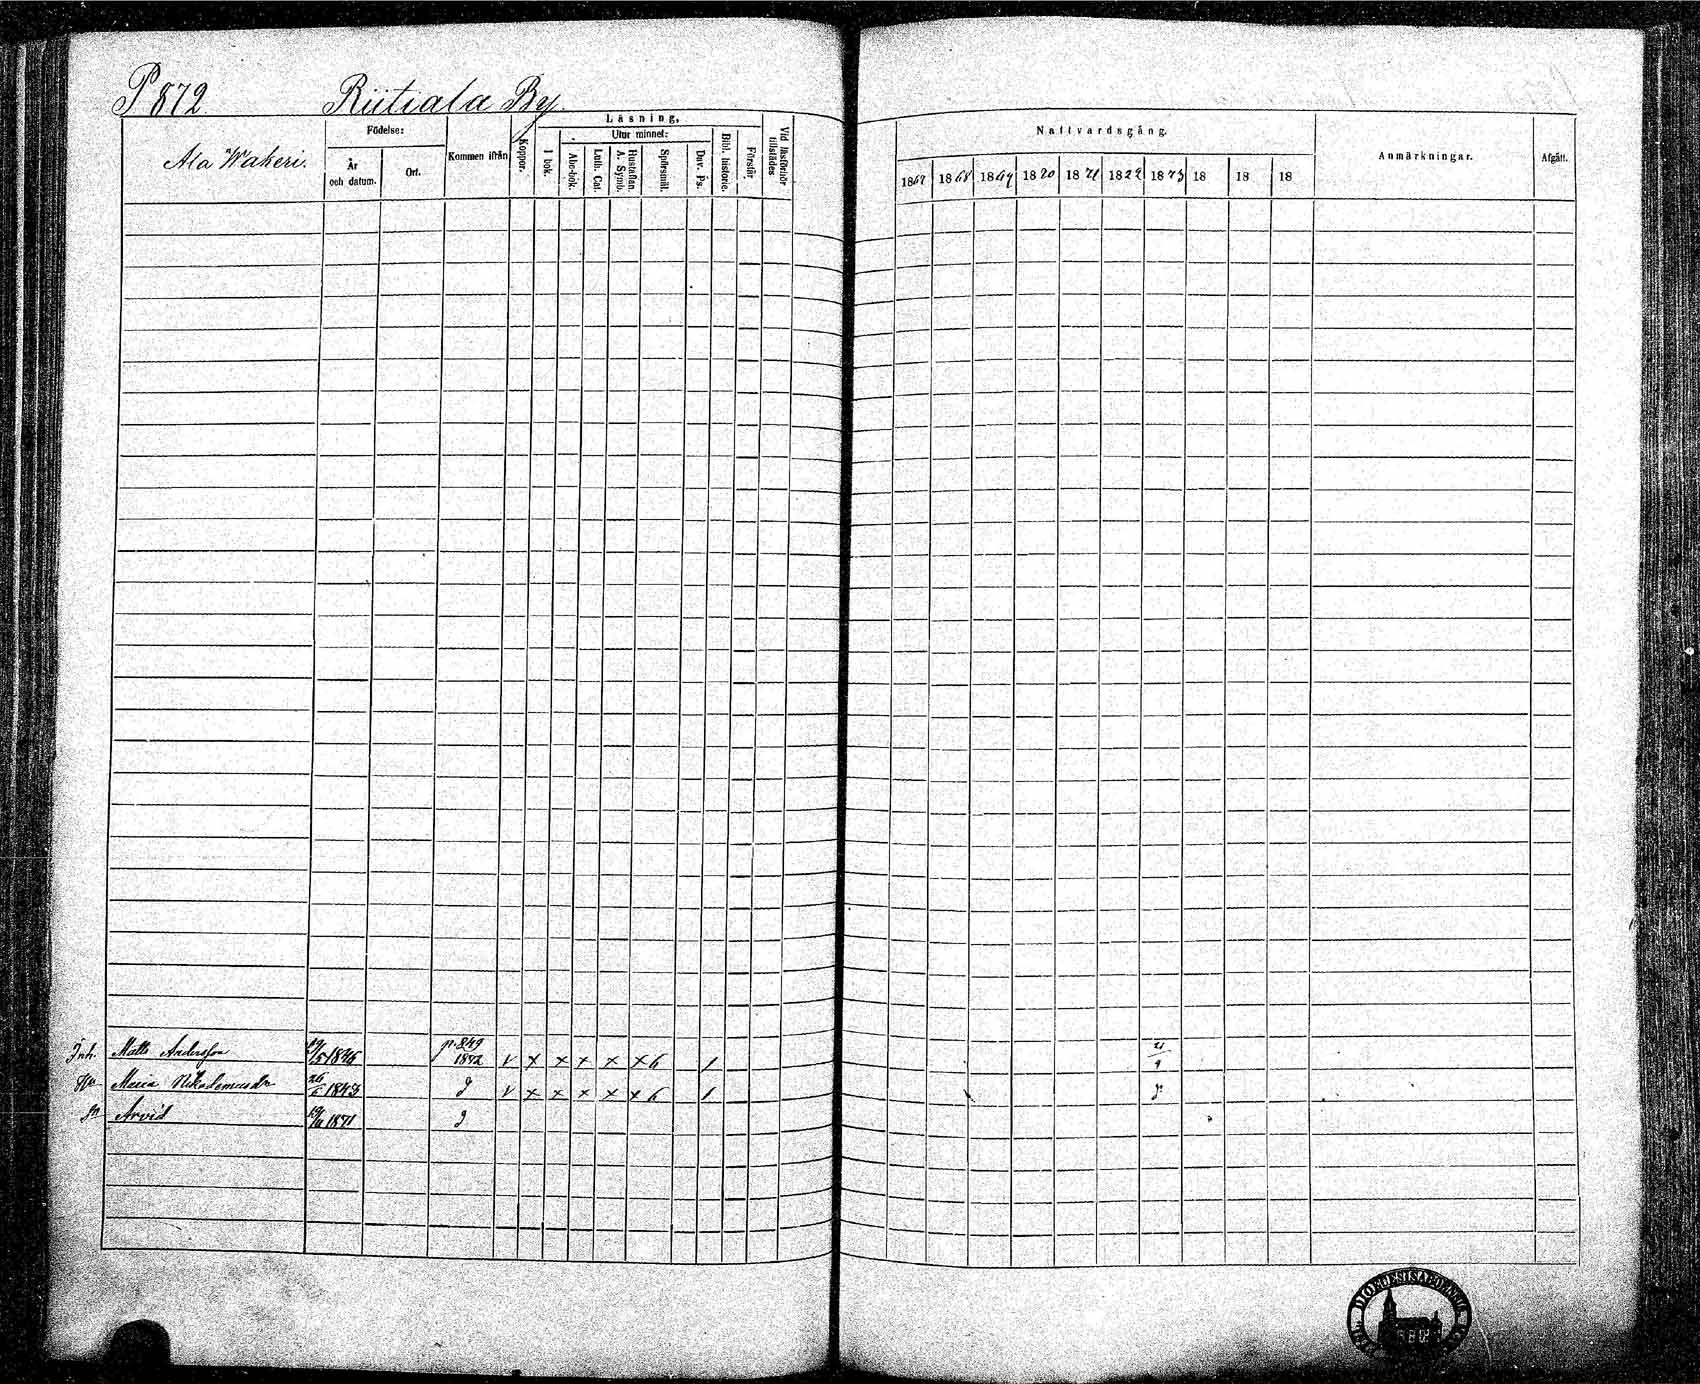 P 872. Riitiala By.
Ala Wakeri.
Födelse:
År och datum.
Ort.
Kommen ifrån
Koppor.
Läsning,
I bok.
Utur minnet:
Abc-bok.
Luth. Cat.
Hustaflan. A. Symb.
Spörsmål.
Dav. Ps.
Bibl. historie.
Förstår
Vid läsförhör tillstädes
Nattvardsgång.
1867 1868 1869 1870 1871 1872 1873 18 18 18
Anmärkningar.
Afgått.
Inh. Matts Andersson p. 849 1872 v x x x x x 6 1 21/9
Hu Maria Nikodemusdr 1843 v x x x x x 6 1
Sn Arvid 1871
DIOECESIS ABOENSIS